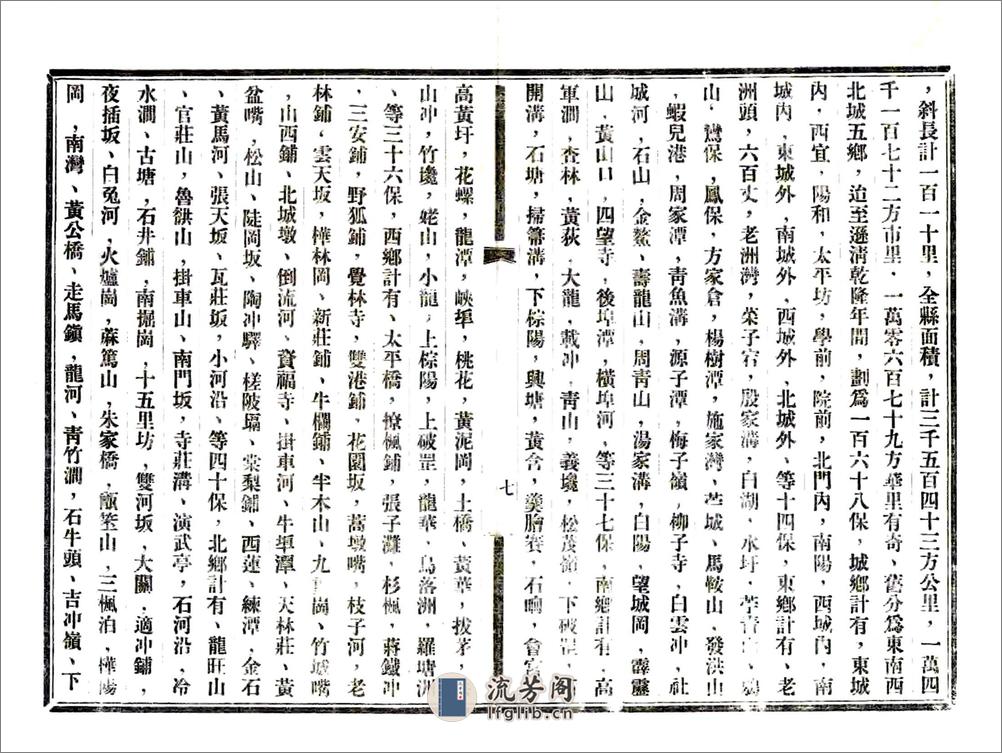 ，斜長計一百一十里，全縣面積，計三千五百四十三方公里，一萬四
千一百七十二方市里，一萬零六百七十九方華里有奇、舊分爲東南西
北城五鄉，迨至遜淸乾隆年間，劃爲一百六十八保，城鄉計有，東城
內，西宜，陽和，太平坊，學前，院前，北門內，南陽，西城內，南
城內，東城外，南城外，西城外，北城外、等十四保，東鄉計有、老
洲頭，六百丈，老洲灣，欒子宕，殷家溝，白湖，水圩，
山，鸞保，鳳保，方家倉，楊樹潭，施家灣，芒城，馬鞍山，發洪山
，蝦兒港，周家潭，靑魚溝，源子潭，梅子嶺，柳子寺，白雲冲，社
城河，石山，金鰲，壽龍山，周靑山，湯家溝，白陽，望城岡，霹靂
山，黃山口，四望寺，後埠潭，橫埠河，等三十七保，南鄉計有，高
軍澗，杳林，黃荻，大龍，載冲，靑山，義塊，松茂嶺，下破罡，
開溝，石塘，掃箒溝，下棕陽，興塘，黃舍，石嘴，會宮
七
高黃圩，花螺，龍潭，峽埠，桃花，黃泥岡，土橋、黃華，拔茅，
山冲，竹墝，姥山，小龍，上棕陽，上破罡，龍華，烏落洲，羅塘洲
、等三十六保，西鄉計有、太平橋，撩楓鋪，張子灘，杉楓，蔣鐵冲
，三安鋪，野狐鋪，覺林寺，雙港鋪，花園坂，蒿墩嘴，枝子河，老
林鋪，雲天坂，樺林岡，新莊鋪、牛欄鋪、半木山、九崗、竹城嘴
，山西鋪、北城墩、倒流河、資福寺、掛車河、牛埠潭、天林莊、黃
盆嘴，松山、陡岡坂、陶冲驛、槎陂塥、棠梨鋪、西蓮、練潭、金石
、黃馬河、張天坂、瓦莊坂，小河沿、等四十保，北鄉計有、龍旺山
、官莊山，魯谼山，掛車山、南門坂，寺莊溝、演武亭，石河沿，冷
水澗、古塘，石井鋪，南掘崗，十五里坊，雙河坂，大關，適冲鋪，
夜插坂、白兔河，火爐崗，蔴篤山，朱家橋，甑箜山，三楓泊，樺陽
岡，南灣、黃公橋、走馬鎮，龍河、靑竹澗，石牛頭、吉冲嶺、下
流芳阁
lfglib.cn